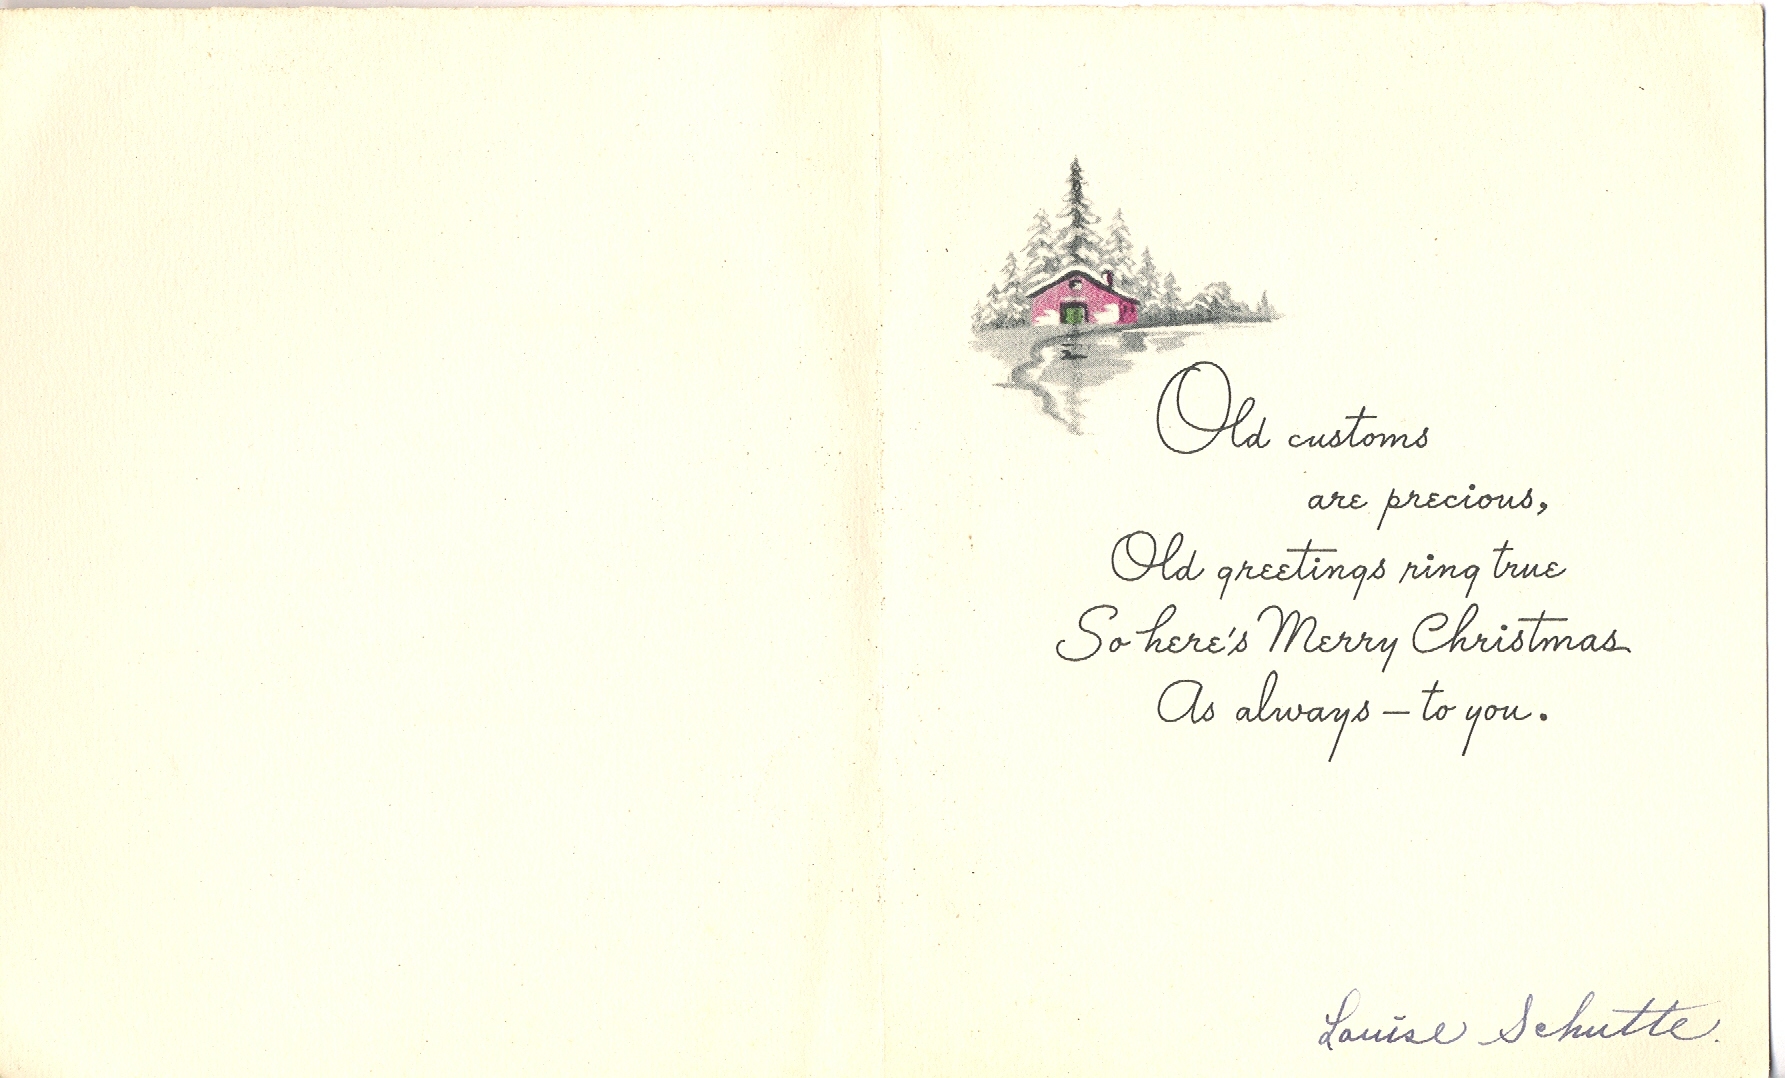 Old customs
are precious,
Old greetings ring true
So here's Merry Christmas
As always — to you.
Louise Schutte.